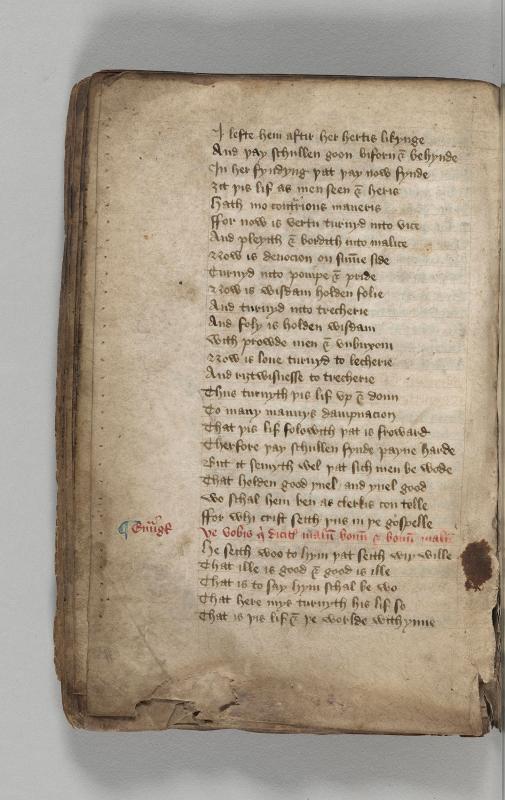 I lefte hem aftir her hertis likynge
And þay schullen goon biforn & behynde
In her fyndyng þat þay now fynde
Ȝit þis lif as men seen & heris
Hath mo contrious maneris
Ffor now is vertu turnyd into vice
And pleyith & bordith into malice
Now is deuocion on sūme side
Turnyd into pompe & pride
Now is wisdam holden folie
And turnyd into trecherie
And foly is holden wisdam
With prowde men & vnbuxom
Now is loue turnyd to lecherie
And riȝtwisnesse to trecherie
Thus turnyth þis lif vp & doun
To many mannys dampnacion
That þis lif folowith þat is froward
Therfore þay schullen fynde payne harde
But it semyth wel þat sich men be wode
That holden good yuel and yuel good
Wo schal hem ben as clerkis con telle
Ffor whi crist seith þus in þe gospelle
Ve vobis qͥ dicitꝭ malū bonū & bonū malū
He seith woo to hym þat seith wiþ wille
That ille is good & good is ille
That is to say hym schal be wo
That here mys turnyth his lif so
That is þis lif & þe worlde withynne